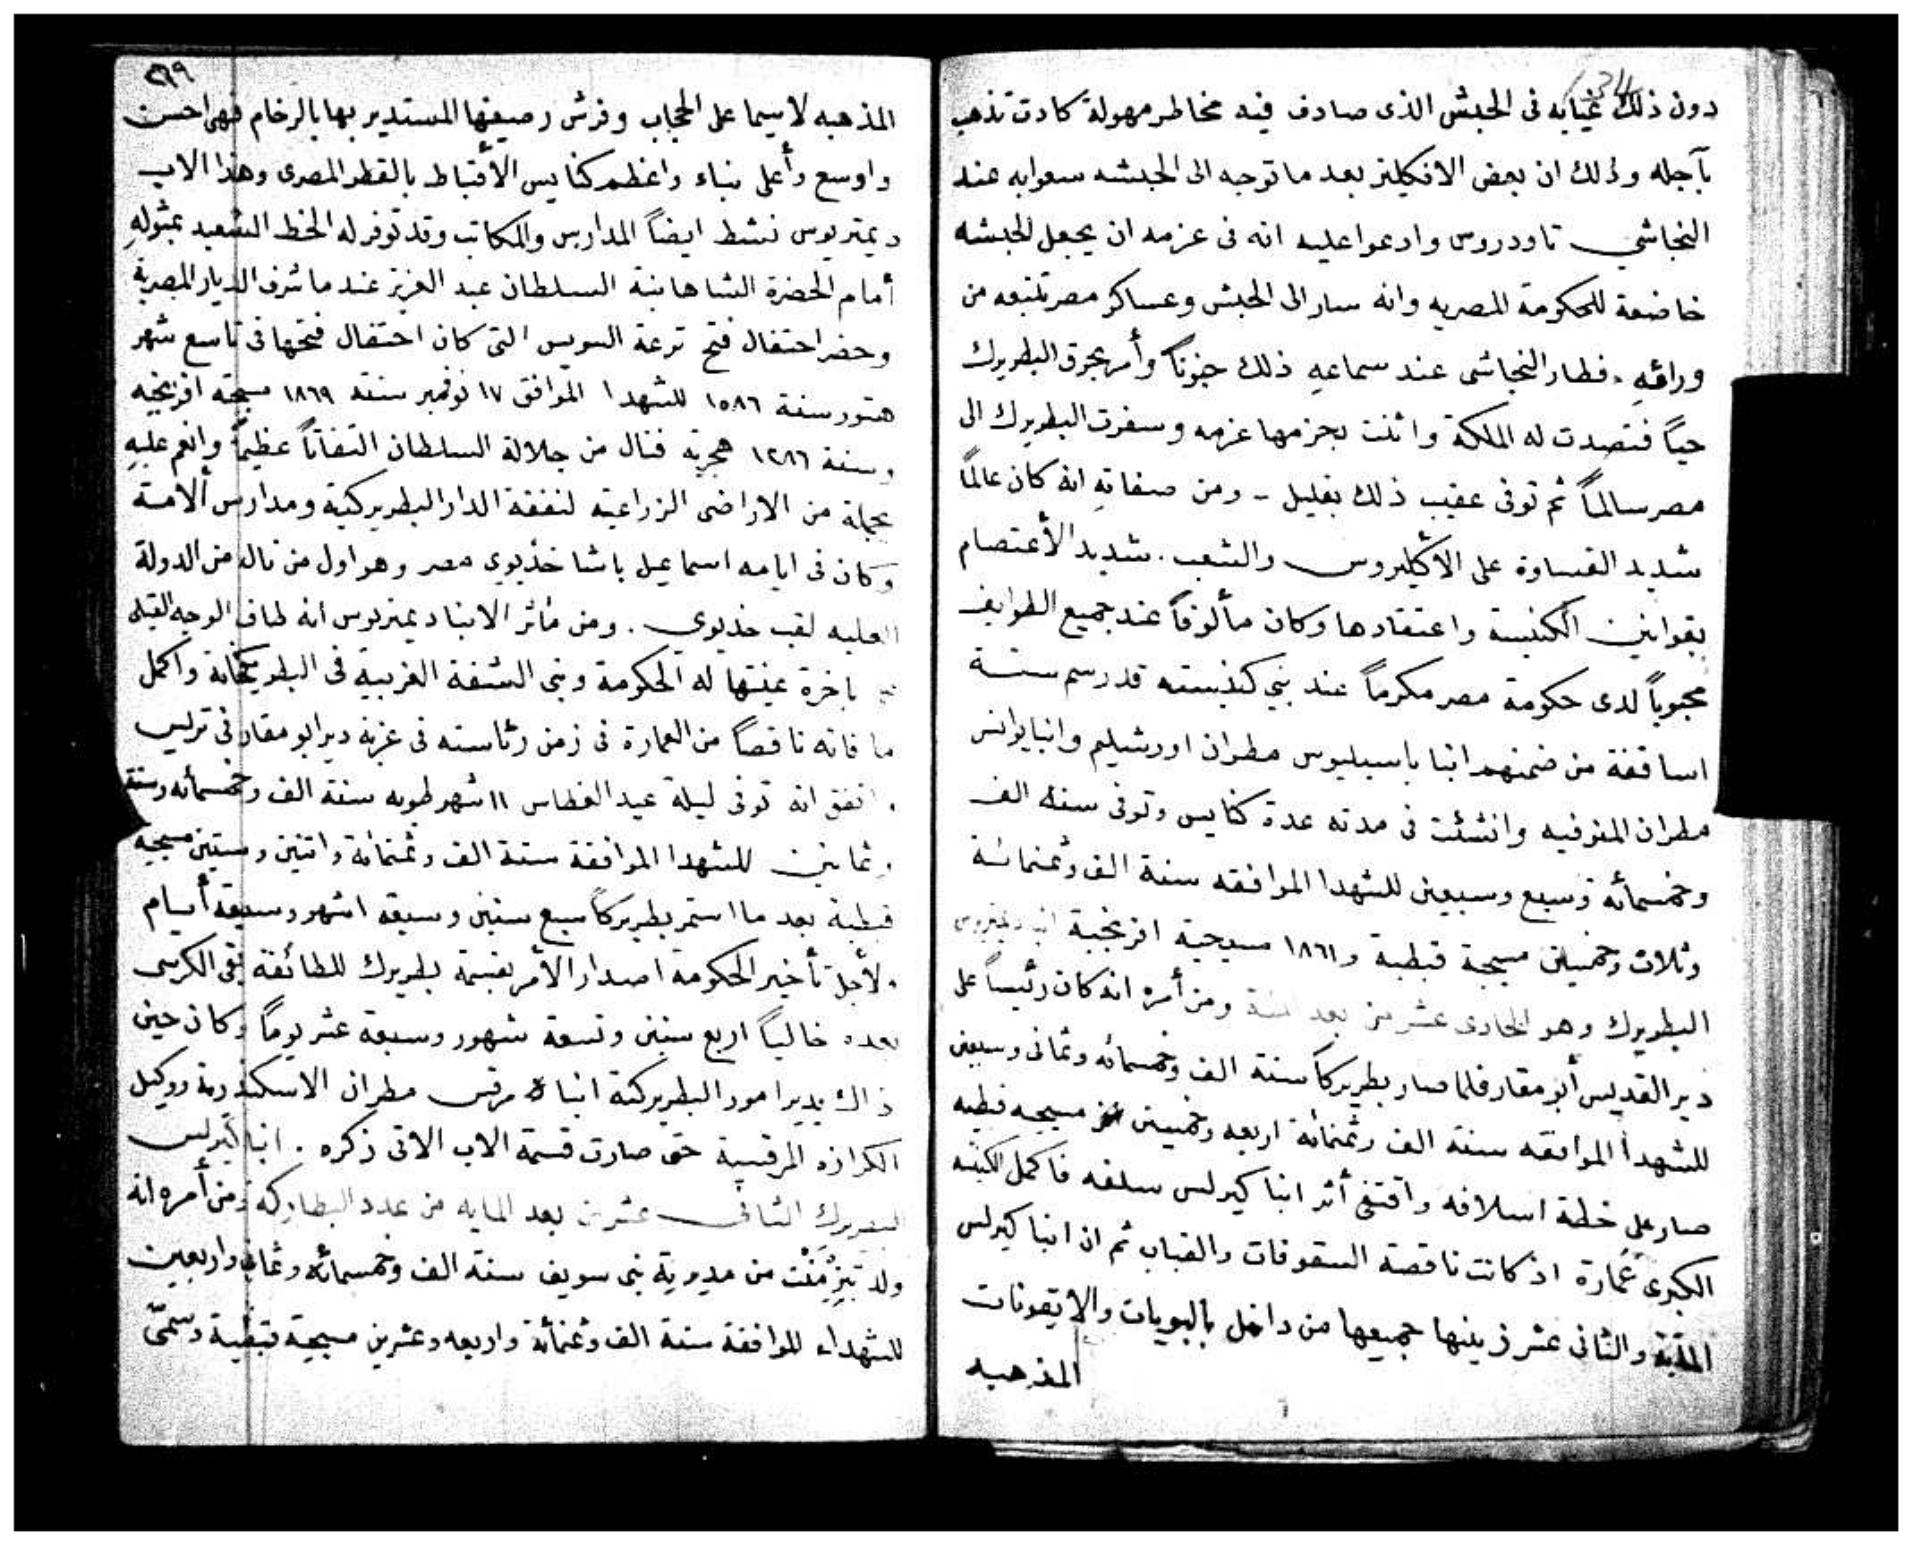 دون ذلك غيابه فى الحبش الذى صادف فيه مخاطر مهولة كادت تذهب
بآجله وذلك ان بعض الانكليز بعد ما توجه الى الحبشه سعوا به عند
النجاشي تاودروس وادعوا عليه انه فى عزمه ان يجعل الحبشه
خاضعة للحكومة المصريه وانه سار الى الحبش وعساكر مصر تتبعه من
ورائهِ. فطار النجاشى عند سماعهِ ذلك جنوناً وأمر بحرق البطريرك
حياً فتصدت له الملكة واثنت بحزمها عزمه وسفرت البطريرك الى
مصر سالماً ثم توفى عقيب ذلك بقليل - ومن صفاتهِ انه كان عالماً
شديد القساوة على الاكليروس والشعب. شديد الأعتصام
بقوانين الكنيسة واعتقادها وكان مألوفاً عند جميع الطوايف
محبوباً لدى حكومة مصر مكرماً عند بنى كنيسته قد رسم ستة
اساقفة من ضمنهم انبا باسيليوس مطران اورشيليم وانبا يوانس
مطران المنوفيه وانشئت فى مدته عدة كنايس وتوفى سنة الف
وخمسمائه وسبع وسبعين للشهدا الموافقه سنة الف وثمنمائة
وثلاث وخمسين مسيحية قبطية و١٨٦١ مسيحية افرنجية انبا ديمتريوس
البطريرك وهو الحادى عشر من بعد المئة ومن أمره انه كان رئيساً على
دير القديس أبو مقار فلما صار بطريركاً سنة الف وخمسمائه وثمانى وسبعين
للشهدا الموافقه سنة الف وثمنمائة اربعه وخمسين مسيحيه قبطيه
صار على خطة اسلافه واقتفى أثر انبا كيرلس سلفه فاكمل الكنيسه
الكبرى عمارة اذ كانت ناقصة السقوفات والقباب ثم ان انبا كيرلس
والثانى عشر زينها جميعها من داخل بالبويات والايقونات
المذهبيه
٣٦٩
المذهبه لاسيما على الحجاب وفرش رصيفها المستدير بها بالرخام فهى احسن
واوسع وأعلى بناء واعظم كنايس الأقباط بالقطر المصرى وهذا الاب
ديمتريوس نشط ايضاً المدارس والمكاتب وقد توفر له الحظ السعيد بمثولهِ
أمام الحضرة الشاهانية السلطان عبد العزيز عندما شرف الديار المصرية
وحضر احتفال فتح ترعة السويس التى كان احتفال فتحها فى تاسع شهر
هتور سنة ١٥٨٦ للشهدا الموافق ١٧ نوفمبر سنة ١٨٦٩ مسيحية افرنجيه
وسنة ١٢٨٦ هجرية فنال من جلالة السلطان التفاتاً عظيماً وانعم عليهِ
بجملة من الاراضى الزراعية لنفقة الدار البطريركية ومدارس ألامة
وكان فى ايامه اسماعيل باشا خديوي مصر وهو اول من نال من الدولة
العليه لقب خديوي. ومن مأثر الانبا ديمتريوس انه طاف الوجه القبلى
باخرة عينتها له الحكومة وبنى الشقة الغربية فى البطريكخانة واكمل
ما فاته ناقصاً من العمارة فى زمن رئاسته فى عزبة دير ابو مقار فى تريس
واتفق انه توفى ليلة عيد الغطاس ١١ شهر طوبه سنة الف وخمسمائه وستة
وثمانين للشهدا الموافقة سنة الف وثمنمائة واتنين وستين مسيحية
قبطية بعد ما استمر بطريركاً سبع سنين وسبعة اشهر وسبعة أيام
ولأجل تأخير الحكومة اصدار الأمر بقسمة بطريرك للطائفة بقى الكرسى
بعده خالياً اربع سنين وتسعة شهور وسبعة عشر يوماً وكان حين
ذاك يدير امور البطريركية انبا مرقس مطران الاسكندرية ووكيل
الكرازه المرقسية حتى صارت قسمة الاب الاتى ذكره. انبا كيرلس
البطريرك الثانى عشر من بعد المايه من عدد البطاركة ومن أمره انه
ولد بتِزمَنْت من مديرية بنى سويف سنة الف وخمسمائه وثمان واربعين
للشهداء الموافقة سنة الف وثمنمائة واربعه وعشرين مسيحية قبطية وسمّى